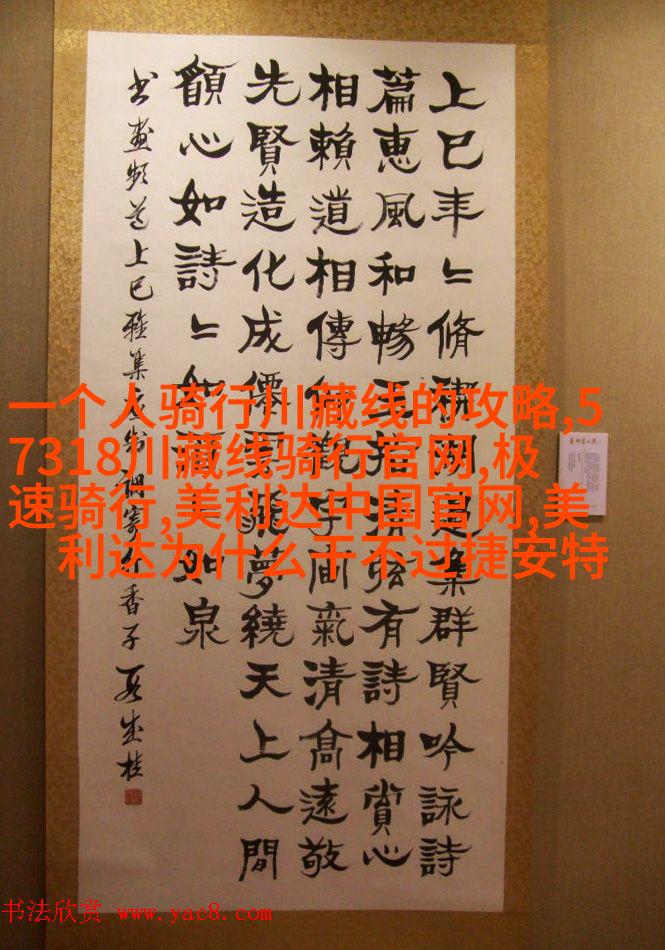 上巳年〻脩禊集群賢吟詠詩
篇惠風和暢清有詩相賞心
相賴道相傳氣清高遠敬
先賢造化成僊夢繞天上人間
願心如詩〻如如泉
书画频道上巳雅集香子
一个人骑行川藏线的攻略,5
7318川藏线骑行官网,极
速骑行,美利达中国官网,美
利达为什么干不过捷安特
书法欣赏 www.yac8.com